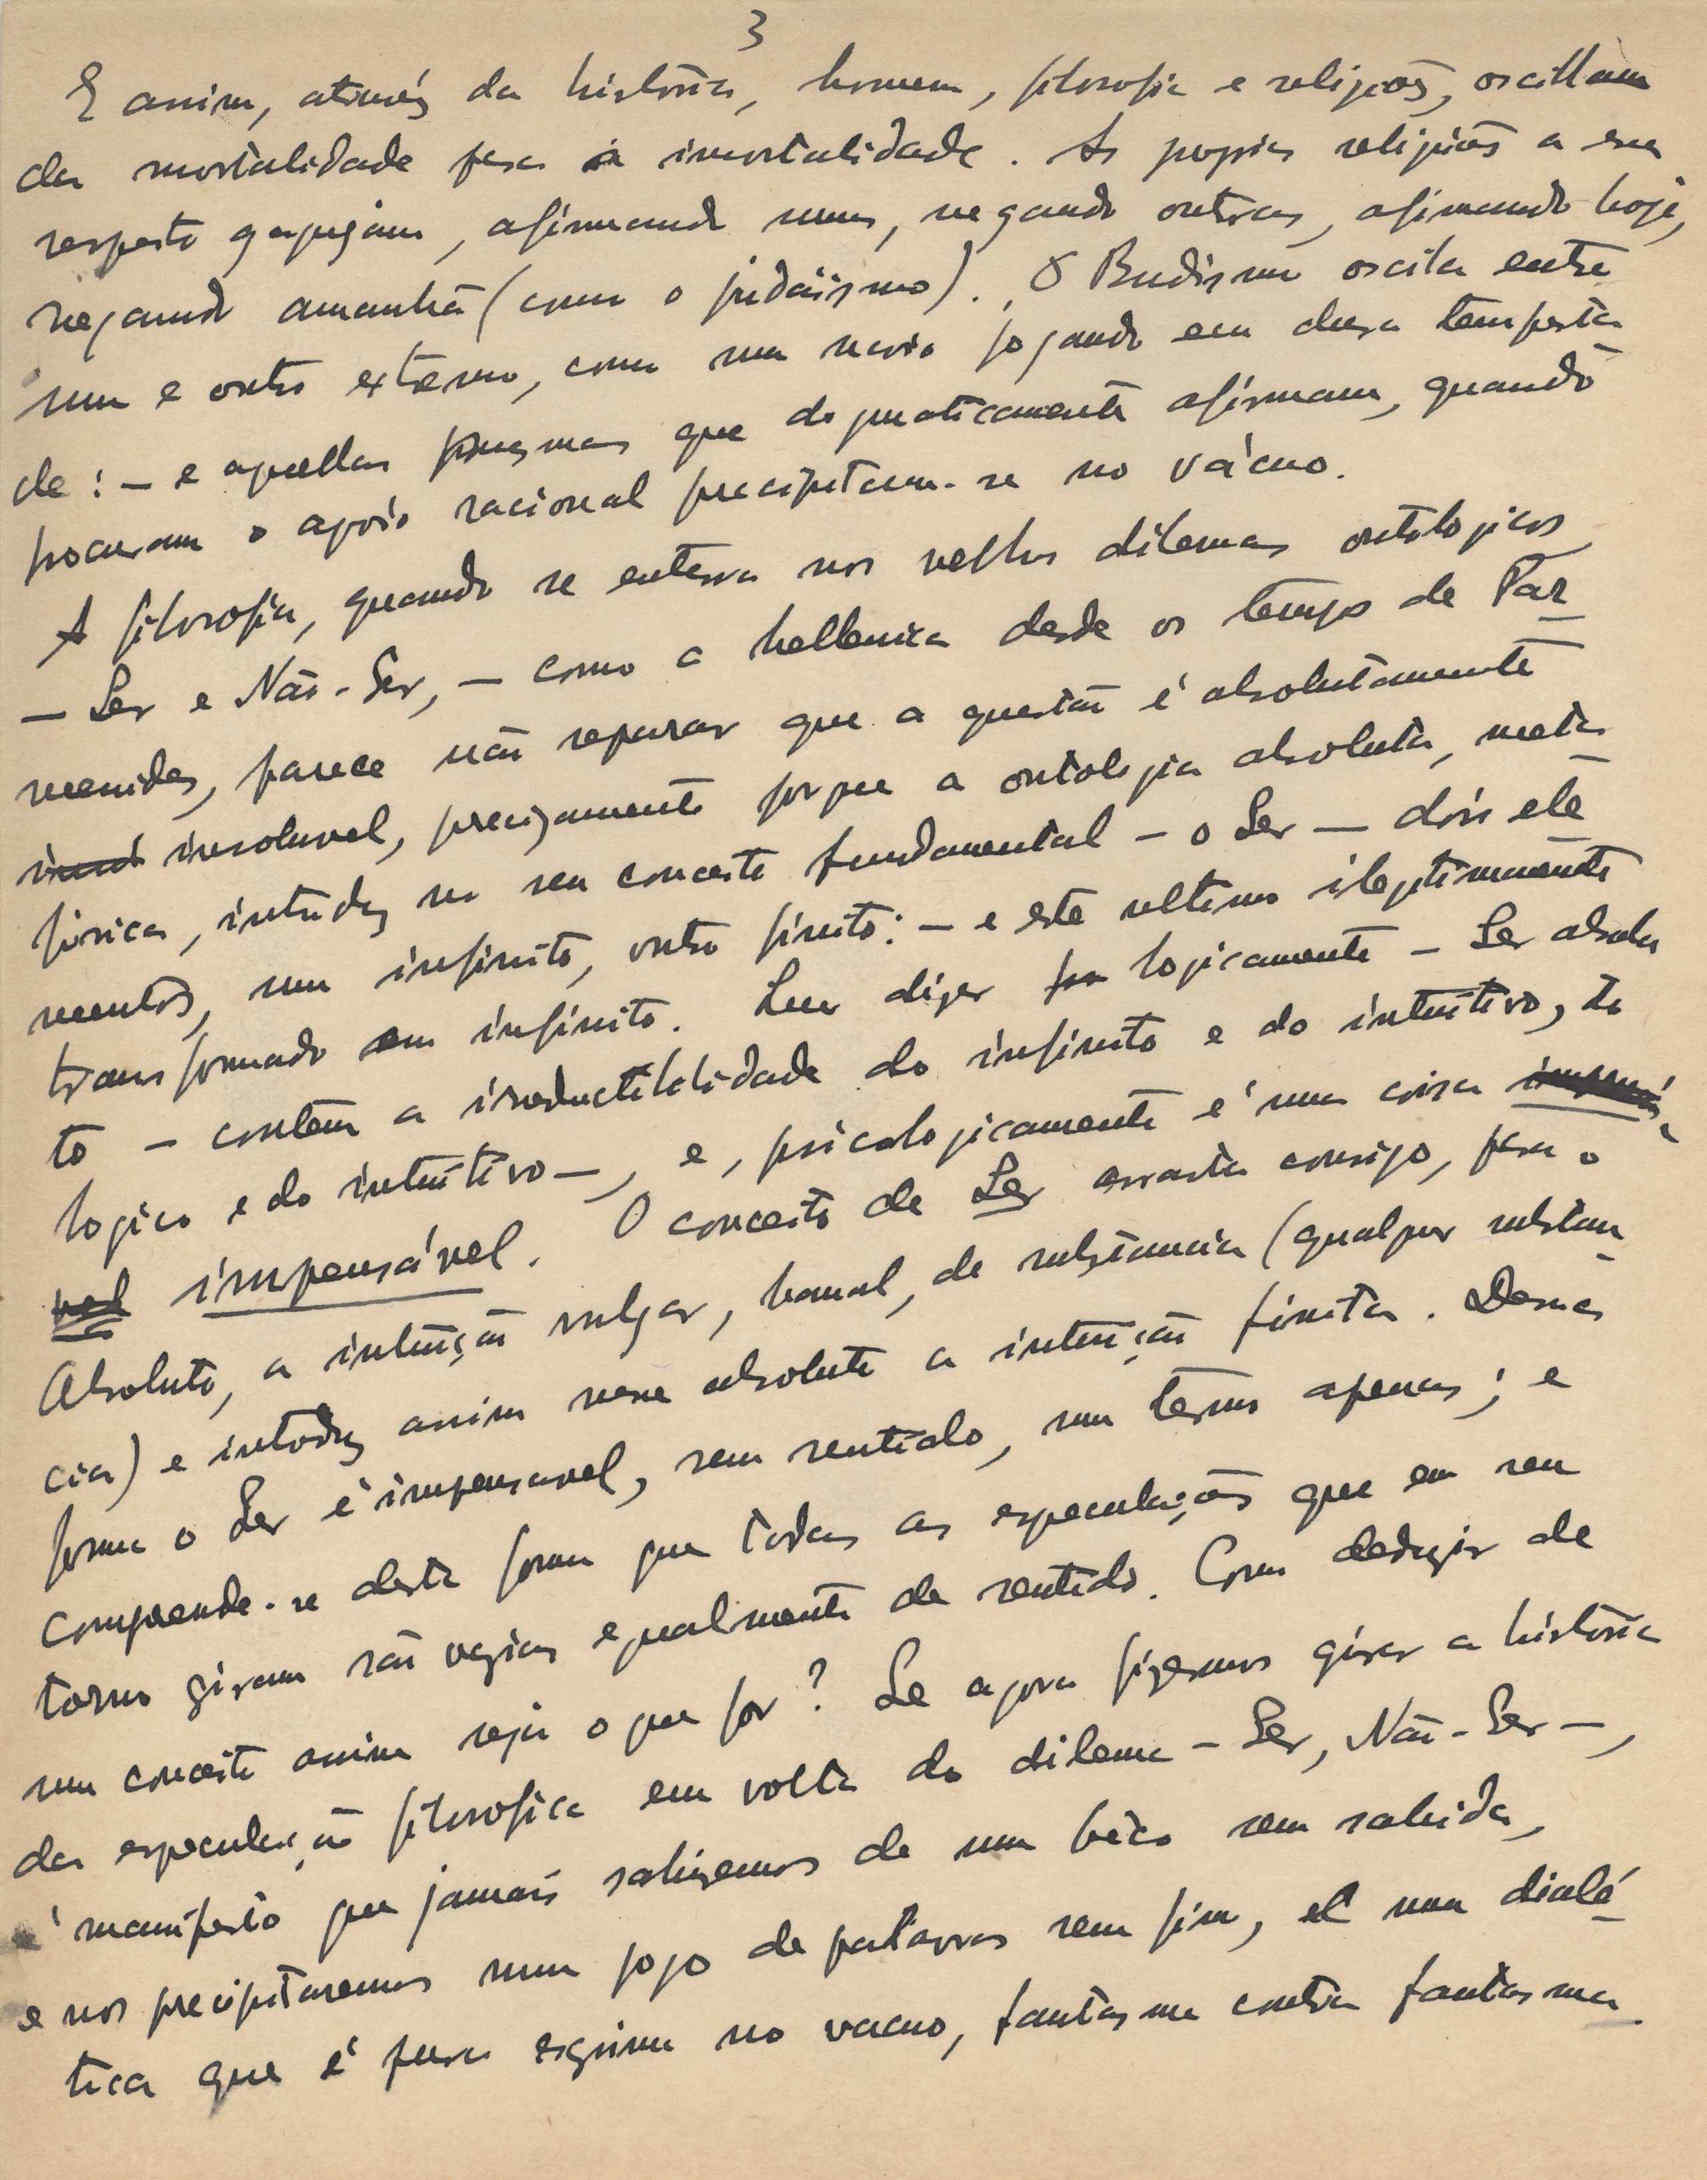 3
E assim, através da história, homem, filosofia e religiões, oscillam
da mortalidade para a imortalidade. As proprias religiões a seu
respeito gaguejam, afirmando umas, negando outras, afirmando hoje,
negando amanhã (como o judaísmo). O Budismo oscila entre
um e outro extremo, como um navio jogando em dura tempesta
de: – e aquellas mesmas que dogmaticamente afirmam, quando
procuram o apoio racional precipitam-se no vácuo.
A filosofia, quando se enterra nos velhos dilemas ontologicos
– Ser e Não-Ser, – como a hellenica desde os tempos de Par
menides, parece não reparar que a questão é absolutamente
insoluvel, precizamente porque a ontologia absoluta, meta
fisica, introduz no seu conceito fundamental – o Ser – dois ele
mentos, um infinito, outro finito: – e este ultimo ilegitimamente
transformado em infinito. Quer dizer logicamente – Ser absolu
to – contem a irreductibilidade do infinito e do intuitivo, do
logico e do intuitivo –, e, psicologicamente é uma coisa
impensável. O conceito de Ser arrasta consigo, para o
Absoluto, a intuição vulgar, banal, de substancia (qualquer substan
cia) e introduz assim nesse absoluto a intuição finita. Dessa
forma o Ser é impensavel, sem sentido, um termo apenas; e
comprende-se desta forma que todas as especulações que em seu
torno giram são vazias egualmente de sentido. Como deduzir de
um conceito assim seja o que for? Se agora fizermos girar a história
da especulação filosofica em volta do dilema – Ser, Não-Ser –,
é manifesto que jamais sahiremos de um beco sem sahida,
e nos precipitaremos num jogo de palavras sem fim, e numa dialé
tica que é pura esgrima no vacuo, fantasma contra fantasma